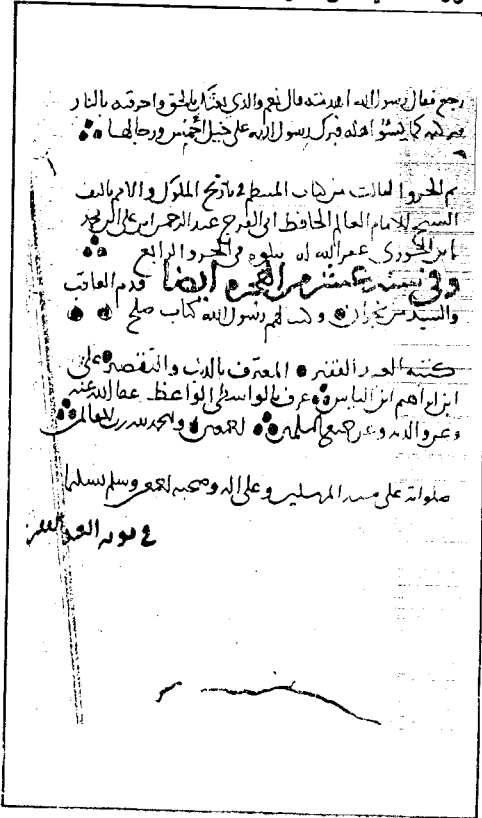 رجع فقال رسول الله اهدمته قال نعم والذي بعثك بالحق واحرقته بالنار
فتركته كما يسوا اهله فبرك رسول الله على خيل أحمس ورجالها
تم الجزو الثالث من كتاب المنتظم في تاريخ الملوك والامم تاليف
الشيخ الامام العالم الحافظ ابي الفرج عبد الرحمن ابن علي ابن محمد
ابن الجوزي غفر الله له يتلوه في الجزو الرابع
وفي سنه عشر من الهجره أيضا قدم العاقب
والسيد من نجران وكتب لهم رسول الله كتاب صلح
كتبه العبد الفقير المعترف بالذنب والتقصير علي
ابن ابراهم ابن الياس عرف بالواسطي الواعظ عفا الله عنه
وعن والديه وعن جميع المسلمين اجمعين والحمد لله رب العالمين
صلواته على سيد المرسلين وعلى اله وصحبه اجمعين وسلم تسليما
في نوبه العبد الفقير